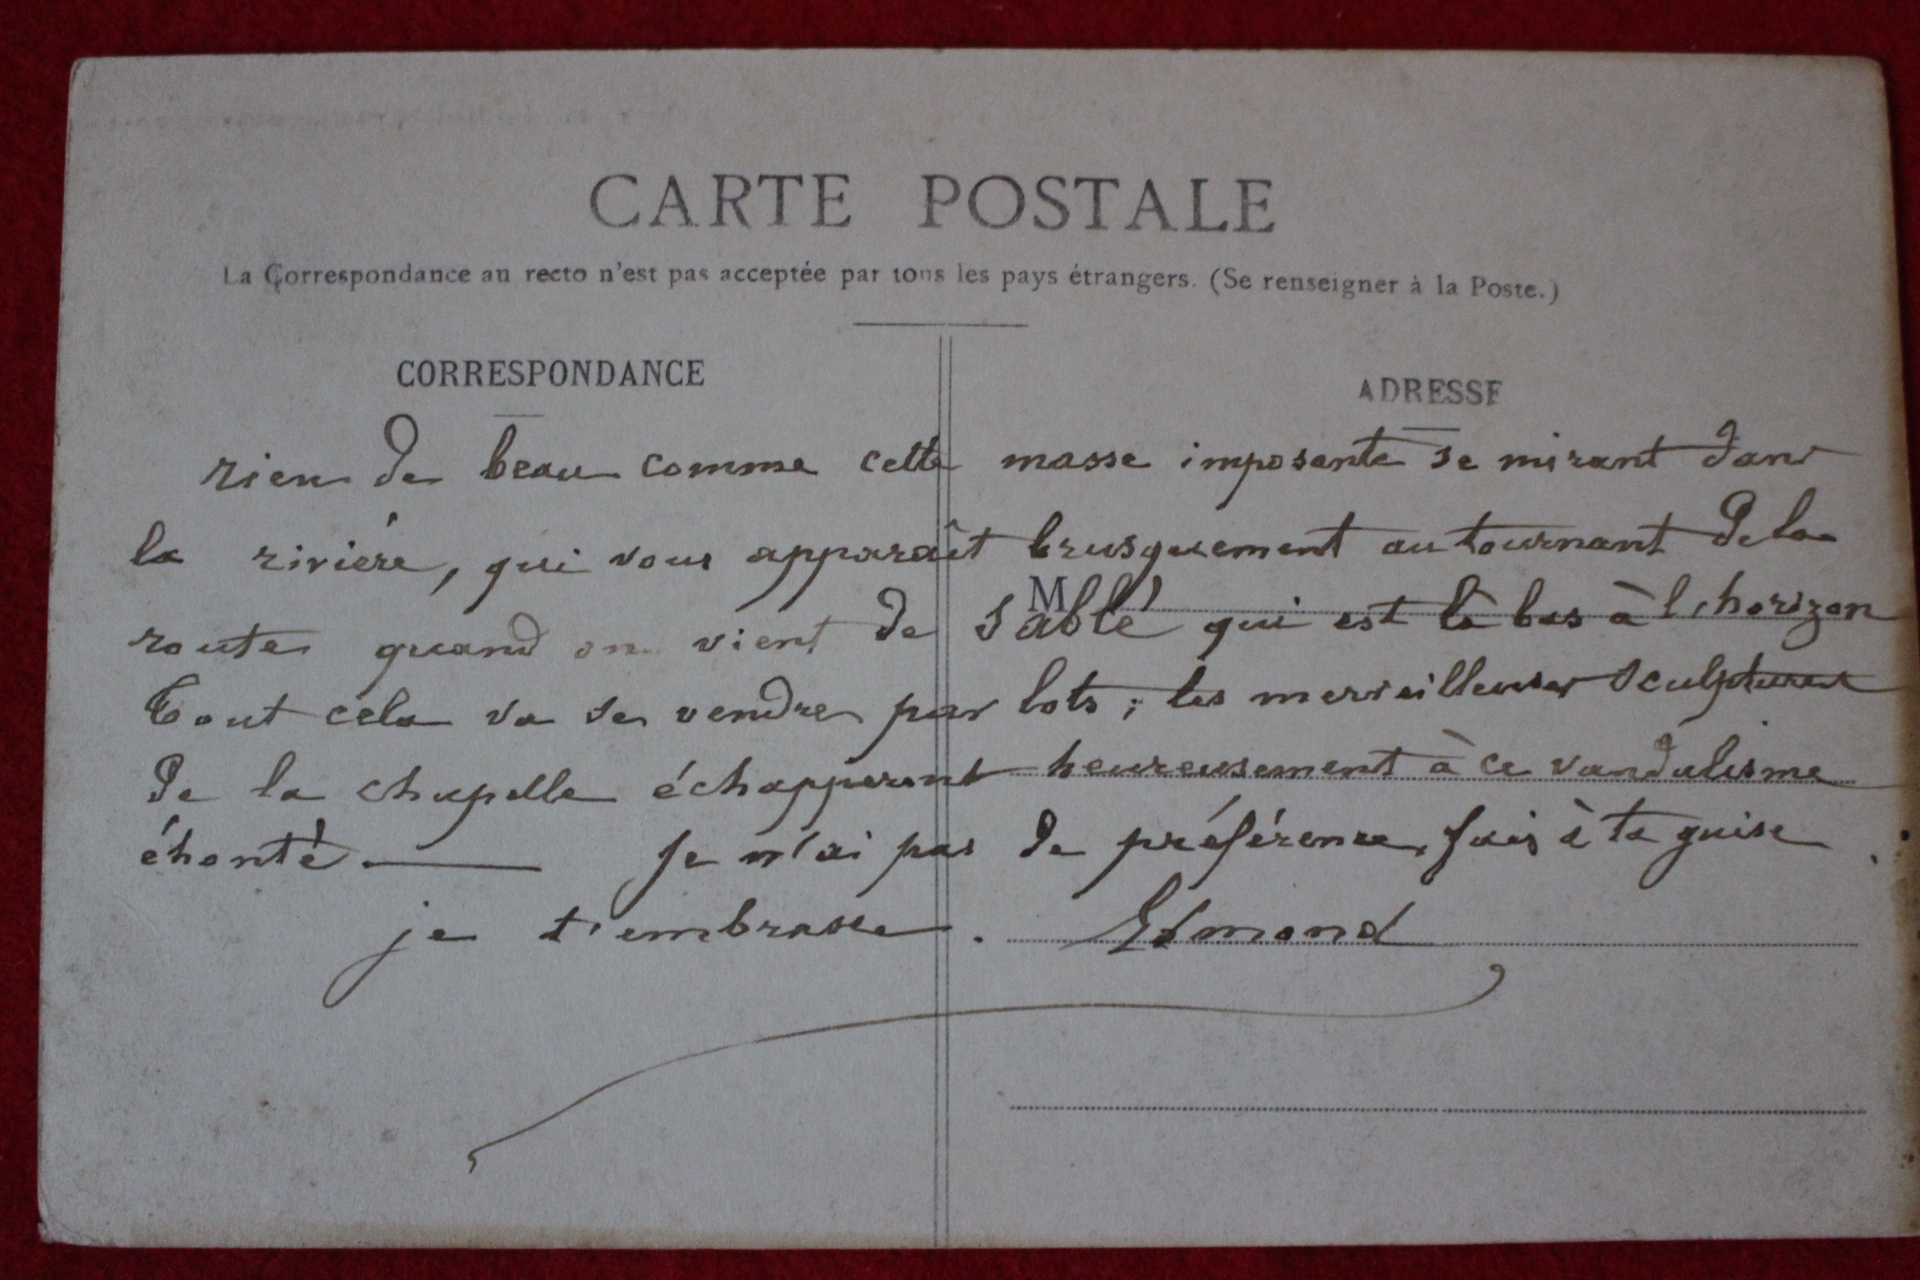 CARTE POSTALE
La Correspondance au recto n'est pas acceptée par tous les pays étrangers. (Se renseigner à la Poste.)
CORRESPONDANCE
ADRESSE
rien de beau comme cette masse imposante se mirant dans
la rivière, qui vous apparaît brusquement au tournant de la
M
route quand on vient de Sablé qui est là bas à l'horizon
Tout cela va se vendre par lots ; les merveilleuses sculptures
de la chapelle échapperont heureusement à ce vandalisme
éhonté. — Je n'ai pas de préférence, fais à ta guise
je t'embrasse. Edmond